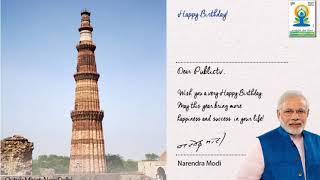 Happy Birthday!
Dear Publictv.
Wish you a very Happy Birthday.
May this year bring more
happiness and success in your life!
Narendra Modi